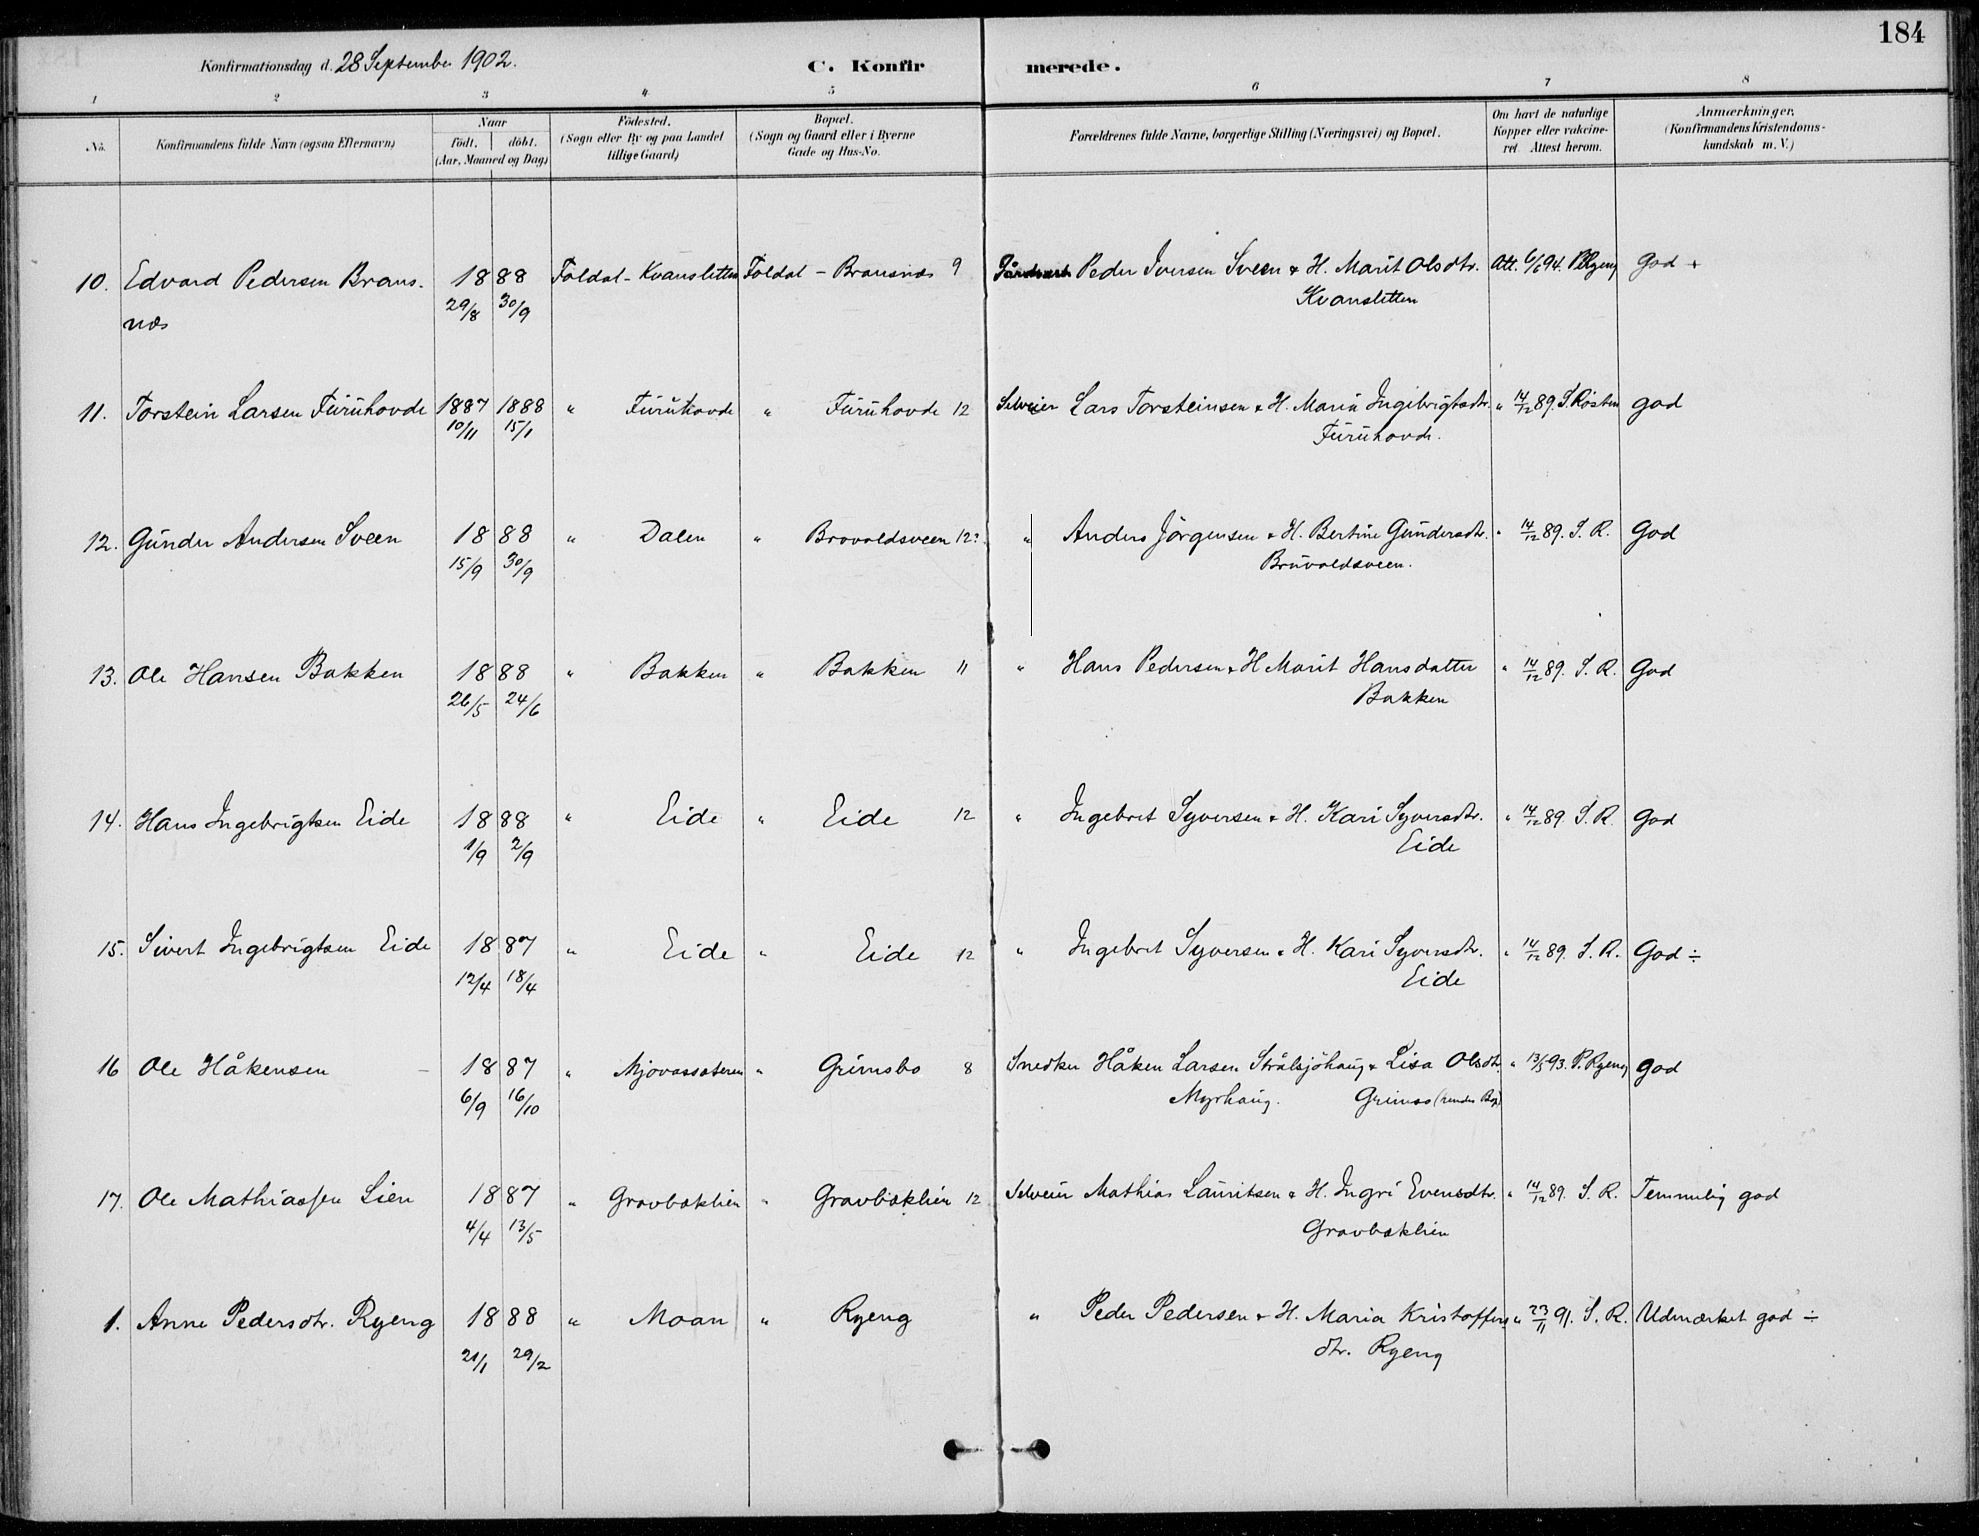 184
Konfirmationsdag d. 28 September 1902.
C. Konfirmerede.
1 2 3 4 5 6 7 8
No. Konfirmandens fulde Navn (ogsaa Efternavn) Naar födt. döbt. (Aar, Maaned og Dag) Födested. (Sogn eller By og paa Landet tillige Gaard) Bopæl. (Sogn og Gaard eller i Byerne Gade og Hus-No. Forældrenes fulde Navne, borgerlige Stilling (Næringsvei) og Bopæl. Om havt de naturlige Kopper eller vakcineret. Attest herom. Anmærkninger. (Konfirmandens Kristendomskundskab m. V.)
10. Edvard Pedersen Brans- 1888 Foldal - Kvansletten Foldal - Bransnæs 9 Peder Iversen Sveen & H. Marit Olsdtr. Att. 6/6 94. P Ryeng god +
næs 29/8 30/9 Kvansletten
11. Torstein Larsen Furuhovde 1887 1888 " Furuhovde " Furuhovde 12 Selveier Lars Torsteinsen & H. Maria Ingebrigtsdtr. " 14/12 89. S. Rosten god
10/11 15/1 Furuhovde.
12. Gunder Andersen Sveen 1888 " Dalen " Brovoldsveen 12? " Anders Jörgensen & H. Bertine Gundersdtr. " 14/12 89. S. R. God
15/9 30/9 Bruvoldsveen.
13. Ole Hansen Bakken 1888 " Bakken " Bakken 11 " Hans Pedersen & H Marit Hansdatter " 14/12 89. S. R. God
26/5 24/6 Bakken
14. Hans Ingebrigtsen Eide 1888 " Eide " Eide 12 " Ingebret Syversen & H. Kari Syversdtr. " 14/12 89. S. R. God
1/9 2/9 Eide
15. Sivert Ingebrigtsen Eide 1887 " Eide " Eide 12 " Ingebret Syversen & H. Kari Syversdtr. " 14/12 89. S. R. God ÷
12/4 18/4 Eide
16 Ole Håkensen - 1887 " Mjovassæteren " Grimsbo 8 Snedker Håken Larsen Strålsjöhaug & Lisa Olsdtr. " 13/5 93. P. Ryeng god
6/9 16/10 Myrhaug. Grimso (hendes Bop)
17. Ole Mathiassen Lien 1887 " Gravbæklien " Gravbæklien 12 Selveier Mathias Lauritsen & H. Ingri Evensdtr. " 14/12 89. S. R. Temmelig god
4/4 13/5 Gravbæklien
1. Anne Pedersdtr. Ryeng 1888 " Moan " Ryeng " Peder Pedersen & H. Maria Kristoffers " 23/11 91. S. R. Udmærket god ÷
21/1 29/2 dtr. Ryeng